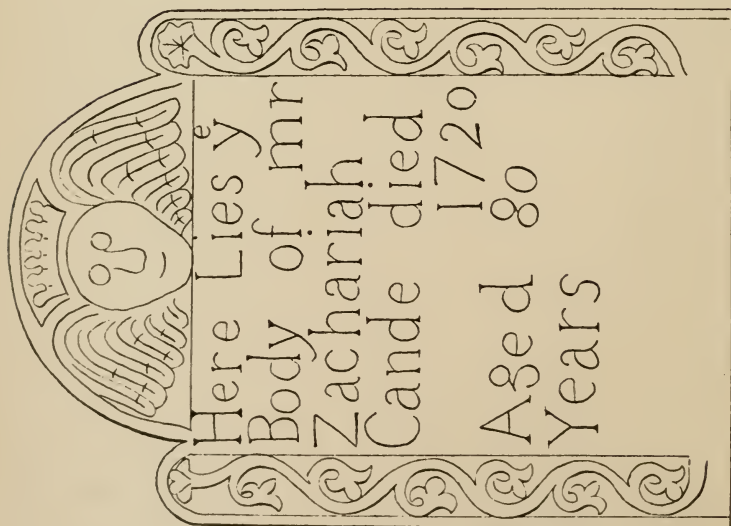 Here Lies yͤ
Body of mr
Zachariah
Cande died
1720
Aged 80
Years